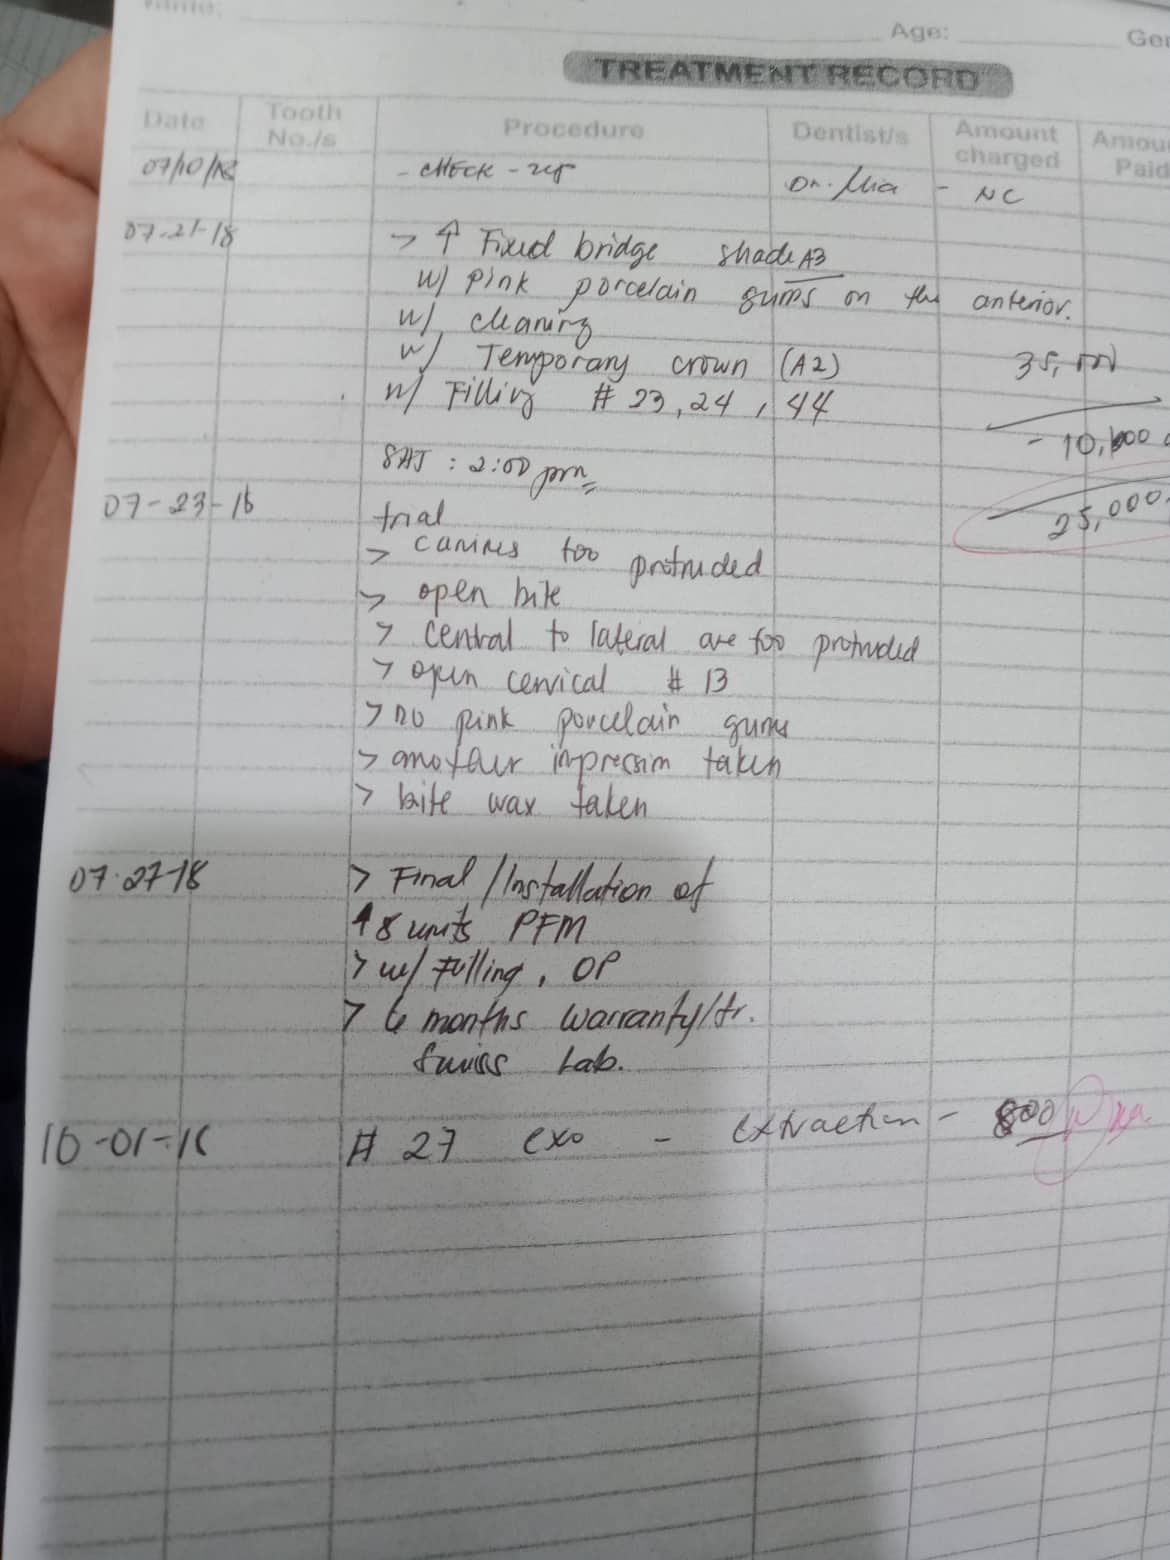 Age:
TREATMENT RECORD
Date Tooth No./s Procedure Dentist/s Amount charged Amou Paid
07/10/18 - CHECK-up Dr. Mia - NC
07-21-18 > ↑ Fixed bridge shade A3
w/ pink porcelain gums on the anterior.
w/ cleaning
w/ Temporary crown (A2) 35,000
w/ Filling # 23, 24, 44
- 10,000
SAT : 2:00 pm
25,000
07-23-18 trial
> canines too protruded
> open bite
> central to lateral are too protruded
> open cervical # 13
> no pink porcelain gums
> another impression taken
> bite wax taken
07-27-18 > Final/Installation of
↑8 units PFM
> w/ Filling, OP
> 6 months warranty/fr.
Swiss Lab.
10-01-18 # 27 exo - extraction - 800